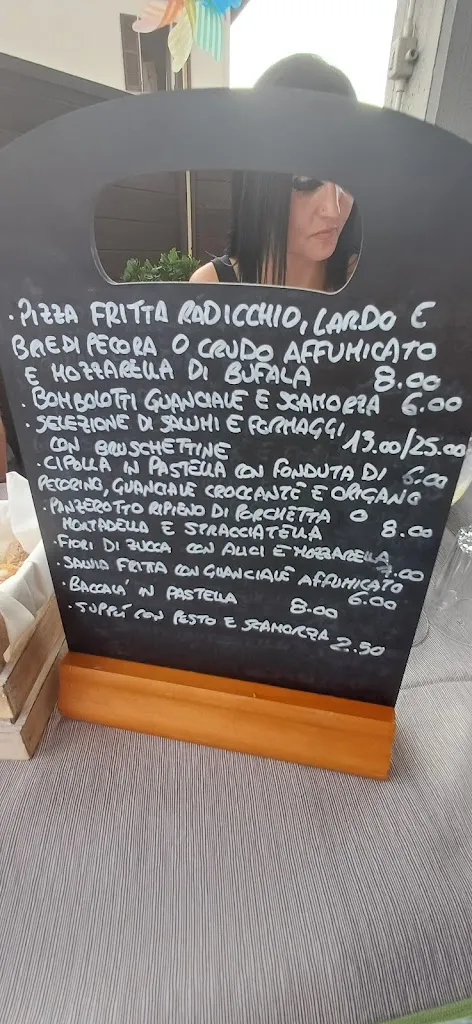 · PIZZA FRITTA RADICCHIO, LARDO E
BRIE DI PECORA O CRUDO AFFUMICATO
E MOZZARELLA DI BUFALA 8.00
· BOMBOLOTTI GUANCIALE E SCAMORZA 6.00
· SELEZIONE DI SALUMI E FORMAGGI
CON BRUSCHETTINE 13.00/25.00
· CIPOLLA IN PASTELLA CON FONDUTA DI 6.00
PECORINO, GUANCIALE CROCCANTE E ORIGANO
· PANZEROTTO RIPIENO DI PORCHETTA O
MORTADELLA E STRACCIATELLA 8.00
· FIORI DI ZUCCA CON ALICI E MOZZARELLA
7.00
· SALVIA FRITTA CON GUANCIALE AFFUMICATO
6.00
· BACCALA' IN PASTELLA 8.00
· SUPPLÌ CON PESTO E SCAMORZA 2.50